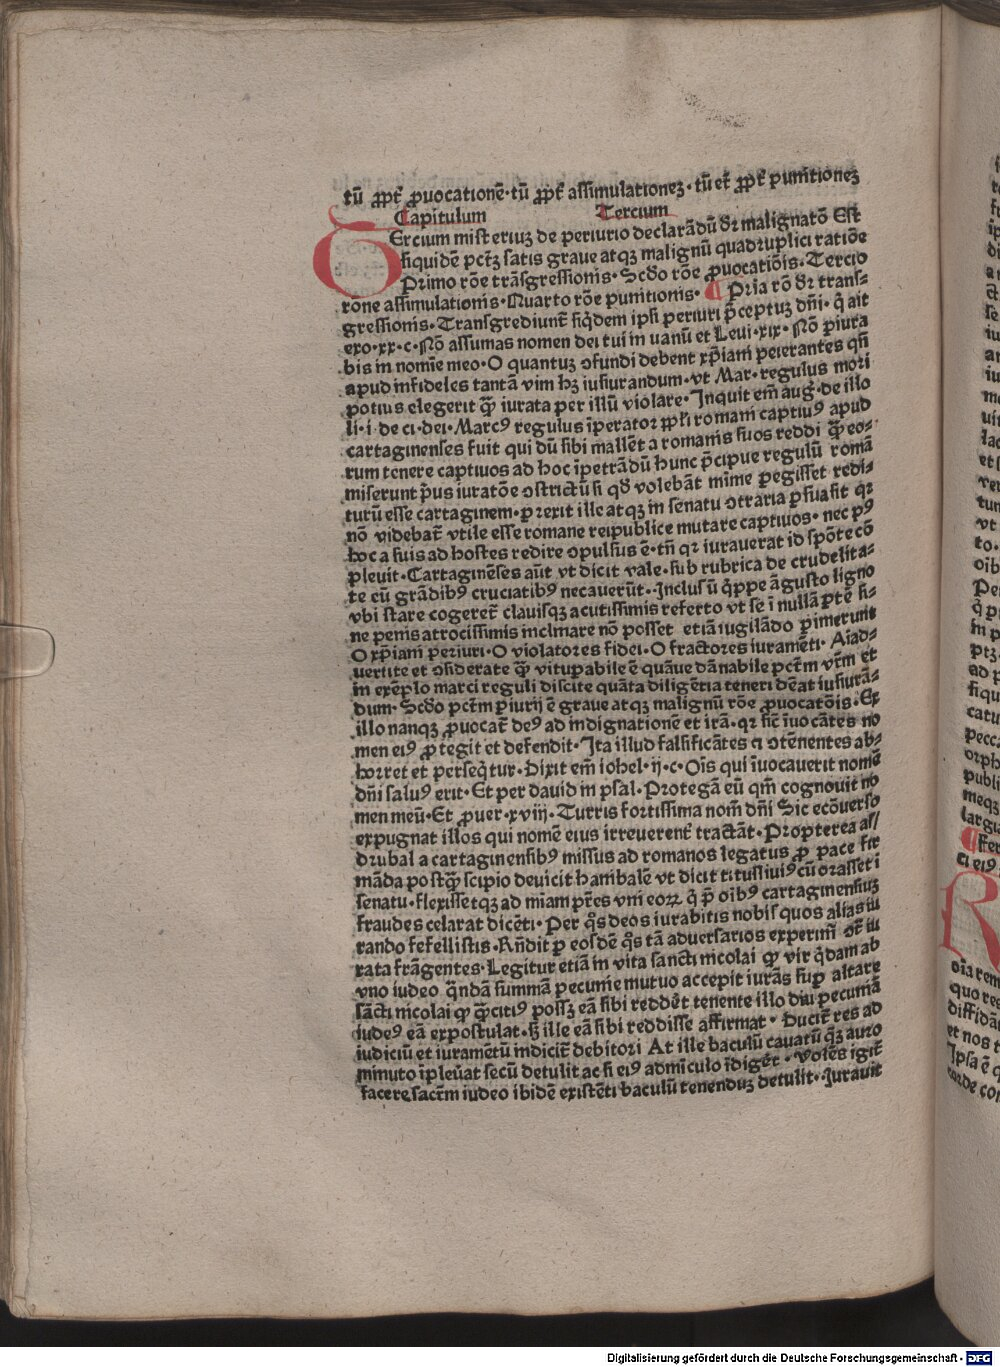 tū ꝓpt̄ ꝓuocationē · tū ꝓpt̄ assimulationeʒ · tū et ꝓpt̄ punitioneʒ
Capitulum Tercium
Tercium misteriuʒ de periurio declarādū dr̄ malignatō Est
siquidē pctʒ satis graue atqʒ malignū quadruplici ratiōe
Primo rōe trāsgressionis · Scdo rōe ꝓuocatiōis · Tercio
rone assimulationis · Quarto rōe punitionis · Pria rō dr̄ trans⸗
gressionis · Transgrediunt̄ siq̇dem ipsi periuri p̄ceptuʒ dn̄i · q̇ ait
exo · xx · c · Nō assumas nomen dei tui in uanū et Leui · xix · Nō ꝑiura
bis in nomīe meo · O quantuʒ ꝯfundi debent xp̄iani peierantes qn̄
apud infideles tantā vim hʒ iusiurandum · vt Mar · regulus mori
potius elegerit q̄ꝫ iurata per illū violare · Inquit em̄ aug · de illo
li · i · de ci · dei · Marcꝰ regulus īperator ꝓpl̄i romani captiuꝰ apud
cartaginenses fuit qui dū sibi mallēt a romanis suos reddi q̄ꝫ eo⸗
rum tenere captiuos ad hoc īpetrādū hunc p̄cipue regulū romā
miserunt p̄us iuratōe ꝯstrictū si qd̄ volebāt mīme ꝑegisset redi⸗
turū esse cartaginem · ꝑrexit ille atqʒ in senatu ꝯtraria ꝑsuasit qꝛ
nō videbat̄ vtile esse romane reipublice mutare captiuos · nec pꝰ
hoc a suis ad hostes redire ꝯpulsus ē · tn̄ qꝛ iurauerat id spōte cō
pleuit · Cartaginēses aūt vt dicit vale · sub rubrica de crudelita⸗
te cū grādibꝰ cruciatibꝰ necauerūt · Inclusū q̇ppe āgusto ligno
vbi stare cogeret̄ clauisqʒ acutissimis referto vt se ī nullā ꝑtē si⸗
ne penis atrocissimis inclinare nō posset etiā iugilādo ꝑimerunt
O xp̄iani ꝑeriuri · O violatores fidei · O fractores iuramēti · Aiad⸗
uertite et ꝯsiderate q̄ꝫ vituꝑabile ē quāue dānabile pctm̄ vrm̄ et
in exēplo marci reguli discite quāta diligētia teneri dēat iusiurā⸗
dum · Scdo pctm̄ ꝑiurij ē graue atqʒ malignū rōe ꝓuocatōis · Ex
illo nanqʒ ꝓuocat̄ deꝰ ad indignationē et irā · qꝛ sic̄ īuocātes no
men eiꝰ ꝓtegit et defendit · Ita illud falsificātes ci ꝯtēnentes ab⸗
horret et perseq̇tur · Dixit em̄ iohel · ij · c · Oīs qui īuocauerit nomē
dn̄i saluꝰ erit · Et per dauid in psal · Protegā eū qm̄ cognouit no
men meū · Et ꝓuer · xviij · Turris fortissima nom̄ dn̄i Sic ecōuerso
expugnat illos qui nomē eius irreuerent̄ tractāt · Propterea as/
drubal a cartaginensibꝰ missus ad romanos legatus ꝓ pace fir
māda postq̄ꝫ scipio deuicit hanibalē vt dicit titusliuiꝰ cū orasset ī
senatu · flexissetqʒ ad miam pr̄es vni eoꝝ q̇ p̄ oibꝰ cartaginensiuʒ
fraudes celarat dicēti · Per q̄s deos iurabitis nobis quos alias iu
rando fefellistis · Rn̄dit ꝑ eosdē q̄s tā aduersarios experim̄ ꝯt̄ iu
rata frāgentes · Legitur etiā in vita sancti nicolai ꝙ vir q̇dam ab
vno iudeo q̄ndā summā pecunie mutuo accepit iurās suꝑ altare
sācti nicolai ꝙ q̄ꝫcitiꝰ possʒ eā sibi reddēt tenente illo diu pecuniā
iudeꝰ eā expostulat · sʒ ille eā sibi reddisse affirmat · Ducit̄ res ad
iudiciū et iuramētū indicit̄ debitori At ille baculū cauatū q̄ʒ auro
minuto īpleūat secū detulit ac si eiꝰ adminiculo īdigēt · Volēs igit̄
facere sacrm̄ iudeo ibidē existēti baculū tenenduʒ detulit · Iurauit
Digitalisierung gefördert durch die Deutsche Forschungsgemeinschaft - DFG